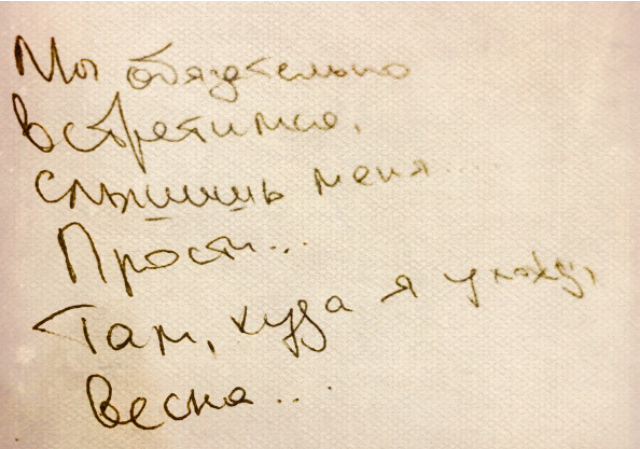 Мы обязательно
встретимся,
слышишь меня...
Прости...
Там, куда я ухожу,
Весна...